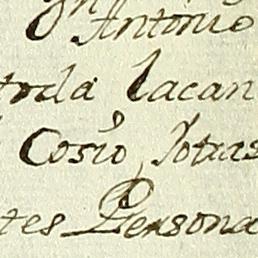 Antonio
toda lacan
Cosio, Yotras
tes Persona